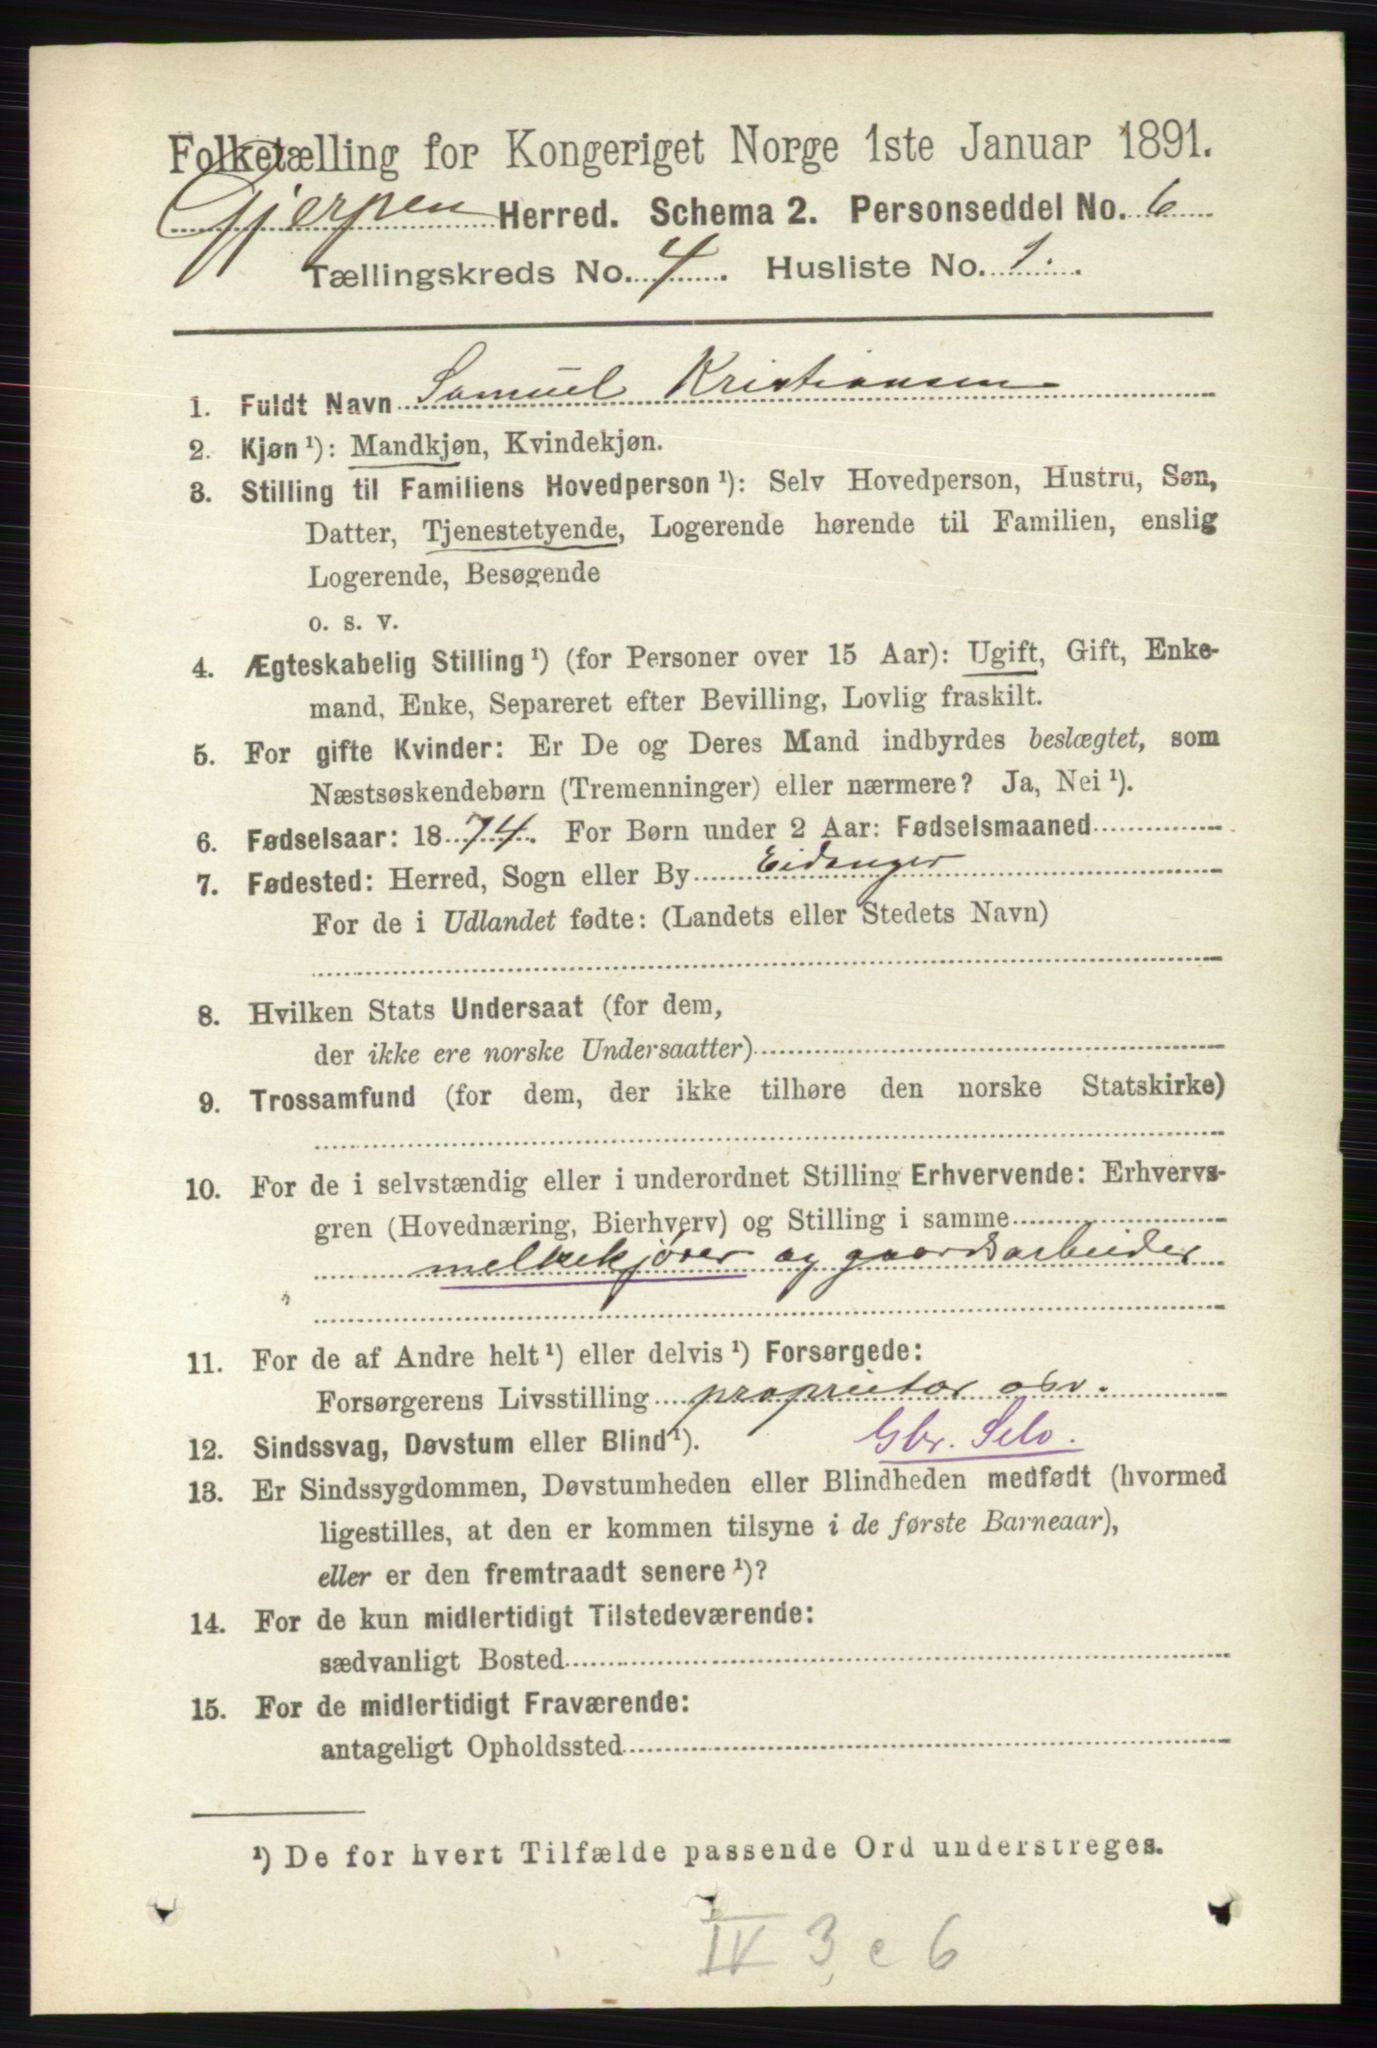 Folketælling for Kongeriget Norge 1ste Januar 1891.
Gjerpen Herred. Schema 2. Personseddel No. 6
Tællingskreds No. 4. Husliste No. 1.
1. Fuldt Navn Samuel Kristiansen
2. Kjøn ¹): Mandkjøn, Kvindekjøn.
3. Stilling til Familiens Hovedperson ¹): Selv Hovedperson, Hustru, Søn,
Datter, Tjenestetyende, Logerende hørende til Familien, enslig
Logerende, Besøgende
o. s. v.
4. Ægteskabelig Stilling ¹) (for Personer over 15 Aar): Ugift, Gift, Enke-
mand, Enke, Separeret efter Bevilling, Lovlig fraskilt.
5. For gifte Kvinder: Er De og Deres Mand indbyrdes beslægtet, som
Næstsøskendebørn (Tremenninger) eller nærmere? Ja, Nei ¹).
6. Fødselsaar: 1874. For Børn under 2 Aar: Fødselsmaaned
7. Fødested: Herred, Sogn eller By Eidanger
For de i Udlandet fødte: (Landets eller Stedets Navn)
8. Hvilken Stats Undersaat (for dem,
der ikke ere norske Undersaatter)
9. Trossamfund (for dem, der ikke tilhøre den norske Statskirke)
10. For de i selvstændig eller i underordnet Stilling Erhvervende: Erhvervs-
gren (Hovednæring, Bierhverv) og Stilling i samme
melkekjører og gaardsarbeider
11. For de af Andre helt ¹) eller delvis ¹) Forsørgede:
Forsørgerens Livsstilling proprietær osv.
12. Sindssvag, Døvstum eller Blind ¹). Gbr. Selv.
13. Er Sindssygdommen, Døvstumheden eller Blindheden medfødt (hvormed
ligestilles, at den er kommen tilsyne i de første Barneaar),
eller er den fremtraadt senere ¹)?
14. For de kun midlertidigt Tilstedeværende:
sædvanligt Bosted
15. For de midlertidigt Fraværende:
antageligt Opholdssted
¹) De for hvert Tilfælde passende Ord understreges.
IV 3, e 6